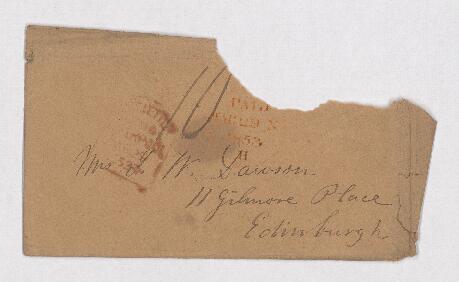 10
PAID
1853
H
Mrs J. W. Dawson
11 Gilmore Place
Edinburgh